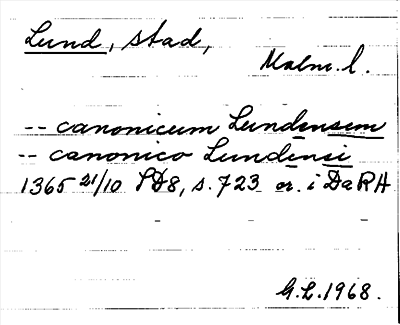 Lund, stad,
Malm. l.
-- canonicum Lundensem
-- canonico Lundensi
1365 21/10 SD8, s. 723 or. i DaRH
G.L. 1968.